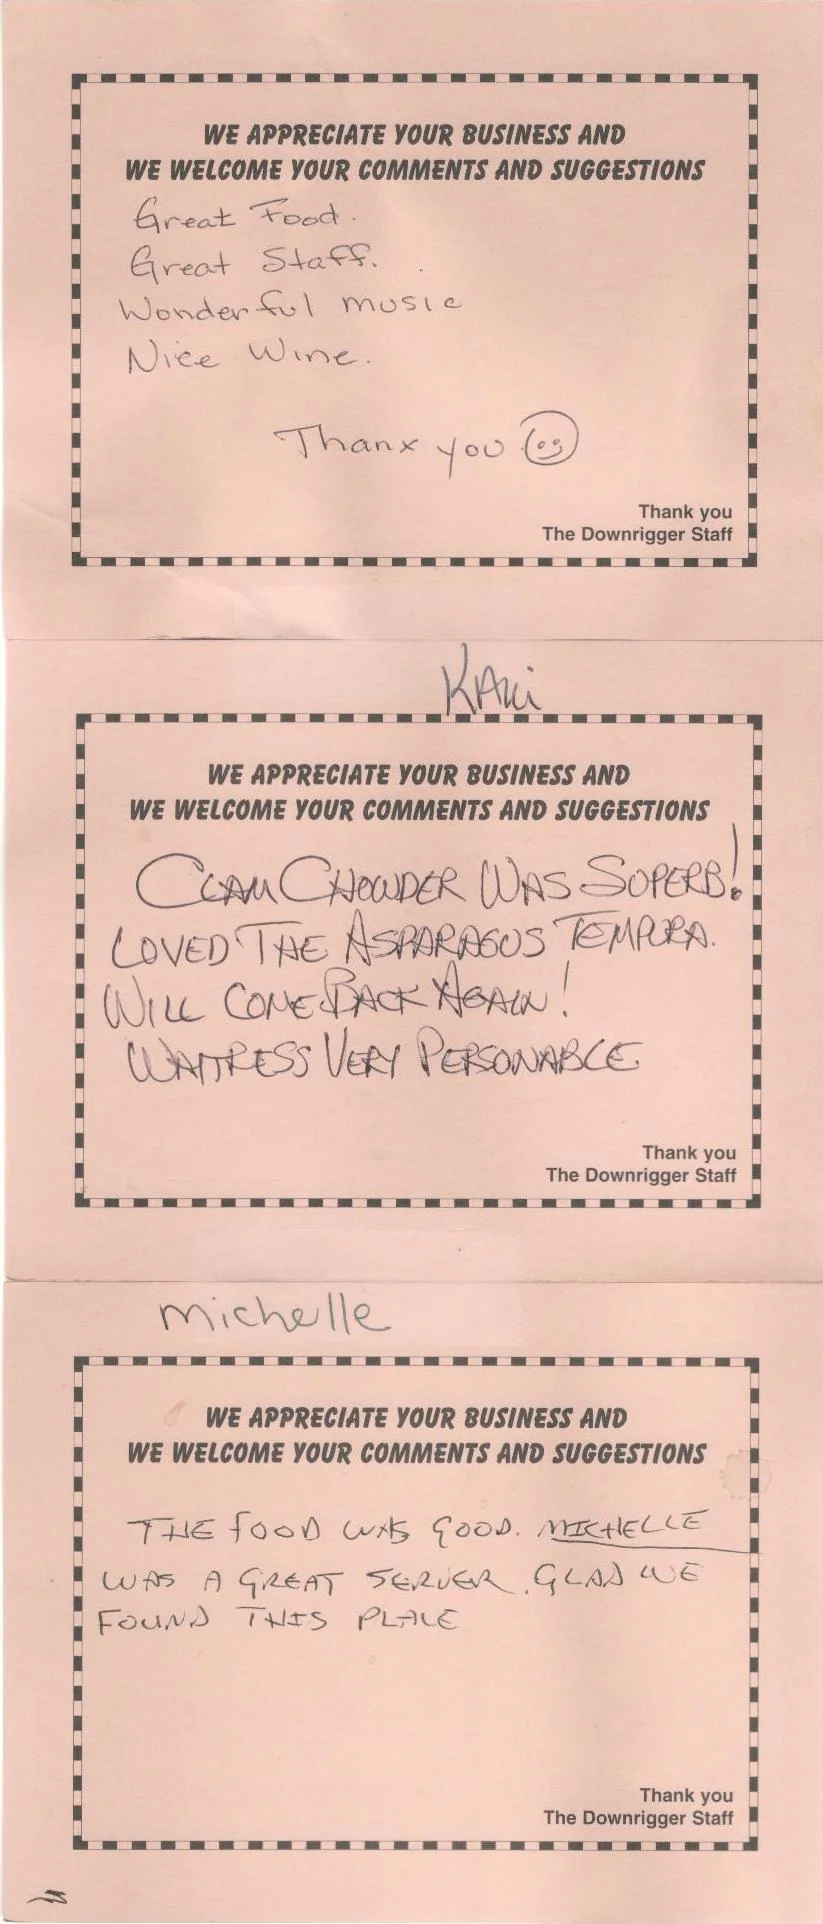 WE APPRECIATE YOUR BUSINESS AND
WE WELCOME YOUR COMMENTS AND SUGGESTIONS
Great Food.
Great Staff.
Wonderful music
Nice Wine.
Thanx you
Thank you
The Downrigger Staff
WE APPRECIATE YOUR BUSINESS AND
WE WELCOME YOUR COMMENTS AND SUGGESTIONS
CLAM CHOWDER WAS SUPERB!
LOVED THE ASPARAGUS TEMPURA.
WILL COME BACK AGAIN!
WAITRESS VERY PERSONABLE
Thank you
The Downrigger Staff
michelle
WE APPRECIATE YOUR BUSINESS AND
WE WELCOME YOUR COMMENTS AND SUGGESTIONS
THE FOOD WAS GOOD. MICHELLE
WAS A GREAT SERVER. GLAD WE
FOUND THIS PLACE
Thank you
The Downrigger Staff